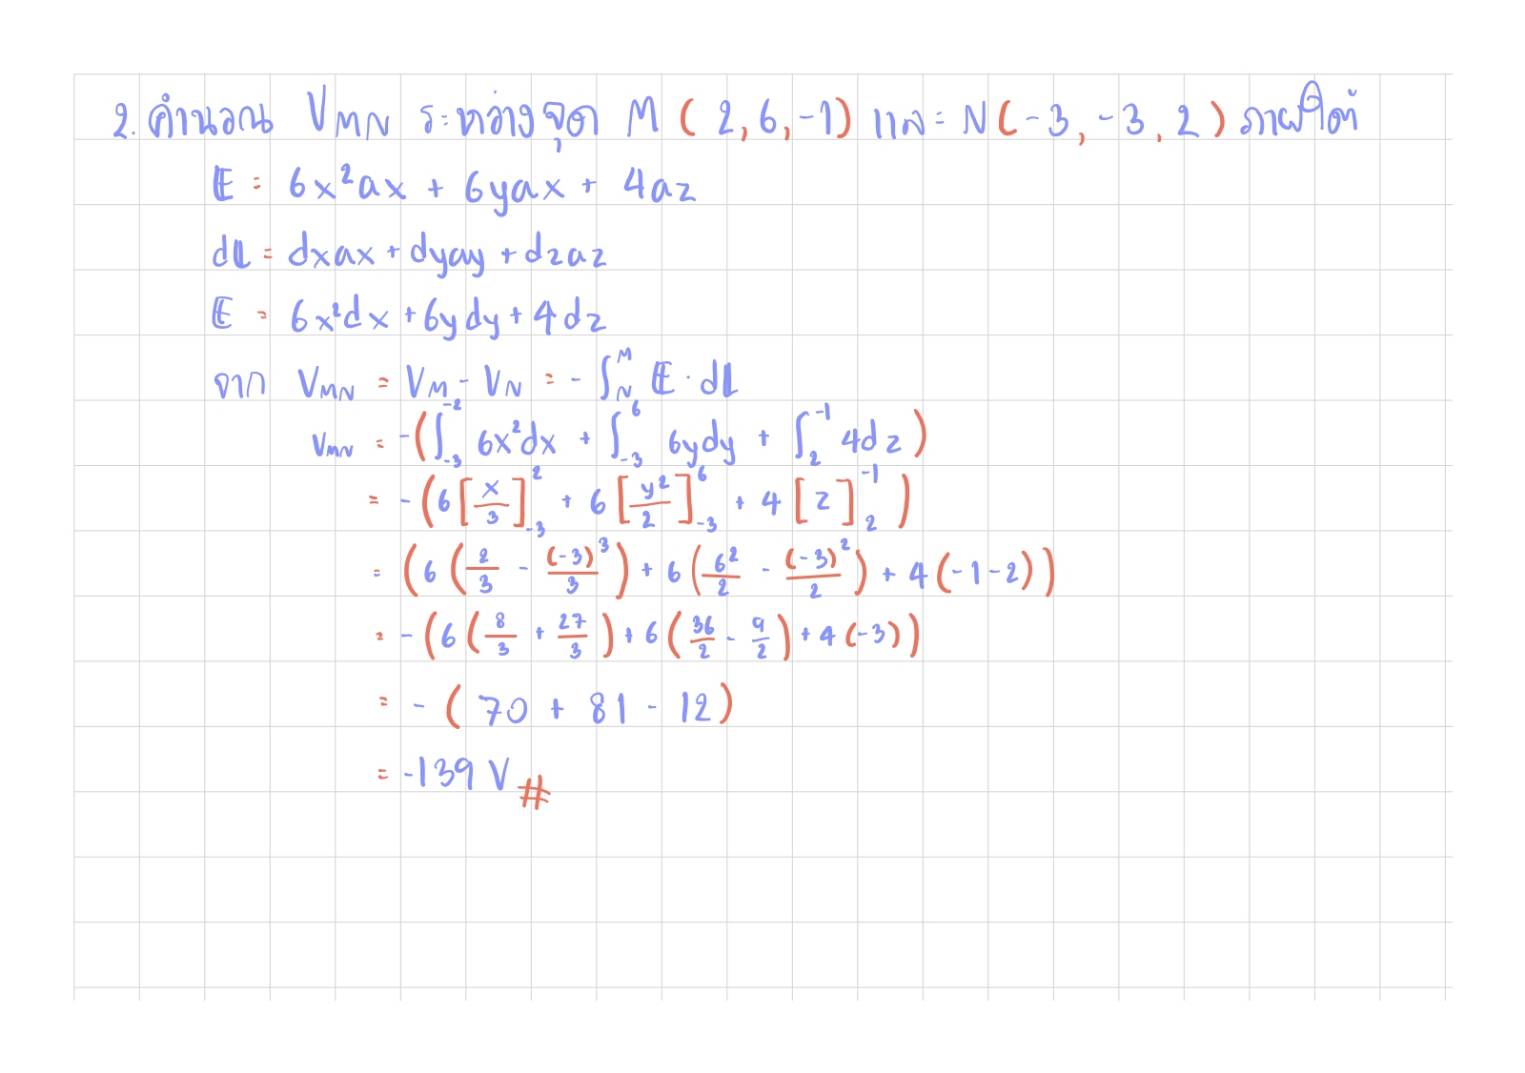 2. คำนวณ VMN ระหว่างจุด M ( 2, 6, -1 ) และ N ( -3, -3, 2 ) ภายใต้
E = 6x²ax + 6yax + 4az
dL = dxax + dyay + dzaz
E = 6x²dx + 6ydy + 4dz
จาก VMN = VM - VN = - ∫_N^M E · dL
VMN = -( ∫_-3^-2 6x²dx + ∫_-3^6 6ydy + ∫_2^-1 4dz )
= -( 6 [ x/3 ]_-3^2 + 6 [ y²/2 ]_-3^6 + 4 [ z ]_2^-1 )
= ( 6 ( 2/3 - (-3)³/3 ) + 6 ( 6²/2 - (-3)²/2 ) + 4 ( -1 - 2 ) )
= -( 6 ( 8/3 + 27/3 ) + 6 ( 36/2 - 9/2 ) + 4 (-3) )
= - ( 70 + 81 - 12 )
= -139 V #